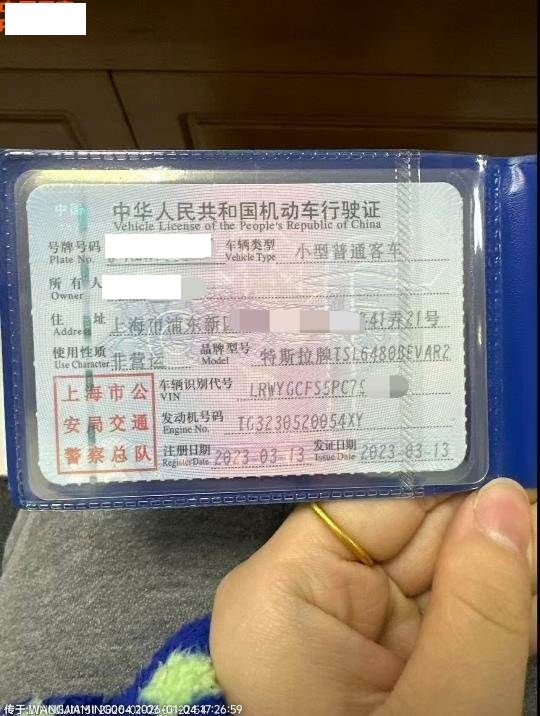 中华人民共和国机动车行驶证
Vehicle License of the People's Republic of China
号牌号码
Plate No.
车辆类型
Vehicle Type
小型普通客车
所有人
Owner
住址
Address
上海市浦东新
41弄21号
使用性质
Use Character
非营运
品牌型号
Model
特斯拉牌TSL6480BEVAR2
车辆识别代号
VIN
LRWYGCFS5PC7
发动机号码
Engine No.
TG3230520054XY
注册日期
Register Date
2023-03-13
发证日期
Issue Date
2023-03-13
上海市公
安局交通
警察总队